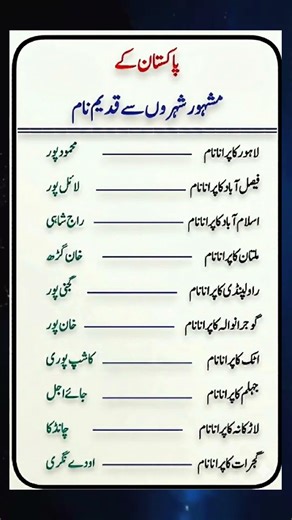 پاکستان کے
مشہور شہروں سے قدیم نام
لاہور کا پرانا نام ــــــــــ محمود پور
فیصل آباد کا پرانا نام ــــــــــ لائل پور
اسلام آباد کا پرانا نام ــــــــــ راج شاہی
ملتان کا پرانا نام ــــــــــ خان گڑھ
راولپنڈی کا پرانا نام ــــــــــ گجنی پور
گوجرانوالہ کا پرانا نام ــــــــــ خان پور
اٹک کا پرانا نام ــــــــــ کاشپ پوری
جہلم کا پرانا نام ــــــــــ جائے اجل
لاڑکانہ کا پرانا نام ــــــــــ چانڈکا
گجرات کا پرانا نام ــــــــــ اودے نگری